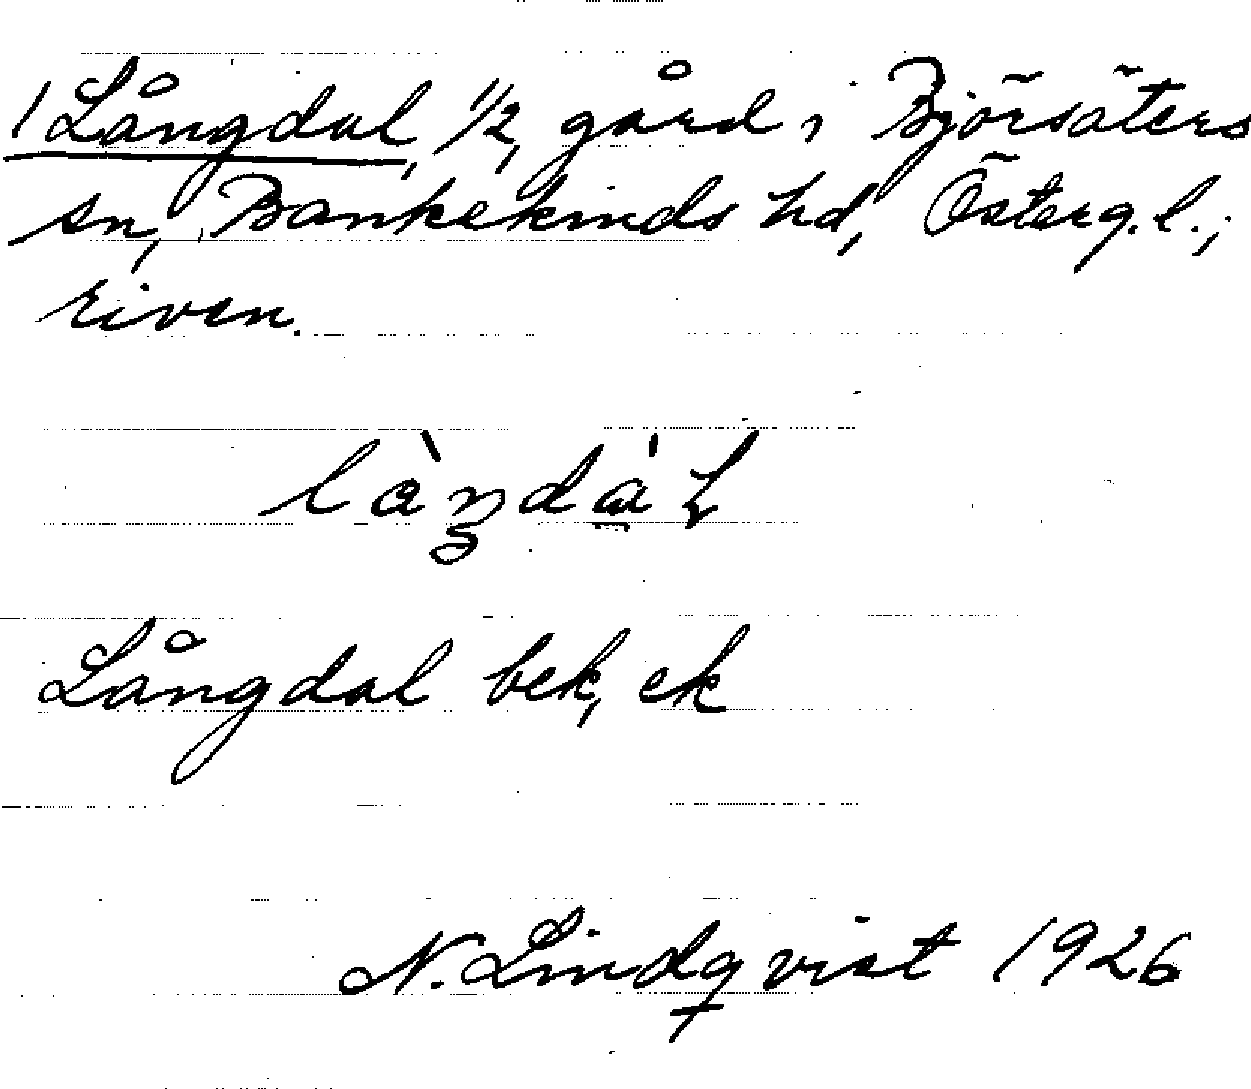 1 Långdal, 1/2 gård i Björsäters
sn, Bankekinds hd, Österg. l.;
riven.
làŋdà̱ɫ
Långdal bek, ek
N. Lindqvist 1926